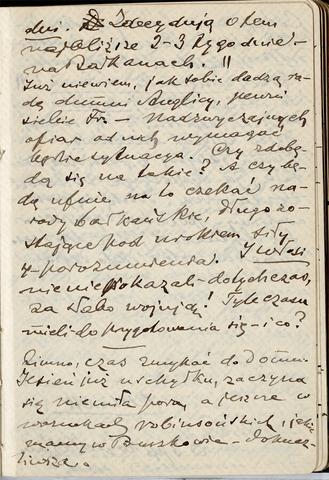 dni. Zdecydują o tem
najbliższe 2-3 tygodnie -
na Bałkanach. !!
Już niewiem, jak sobie dadzą ra-
dę dumni Anglicy, pewni
siebie Fr. - Nadzwyczajnych
ofiar od nich wymagać
będzie sytuacja. Czy zdobę-
dą się na takie? A czy bę-
dą ufnie na to czekać na-
rody bałkańskie, długo zo-
stające pod urokiem siły
4-porozumienia. I Włosi
nie nie pokazali - dotychczas,
za słabo wojują! Tyle czasu
mieli do przygotowania się - i co?
Zimno, czas zmykać do Domu.
Jesień już u schyłku, zaczyna
się niemiła pora, a jeszcze w
warunkach robinsońskich, jakie
znamy w - dokucz-
liwsze.